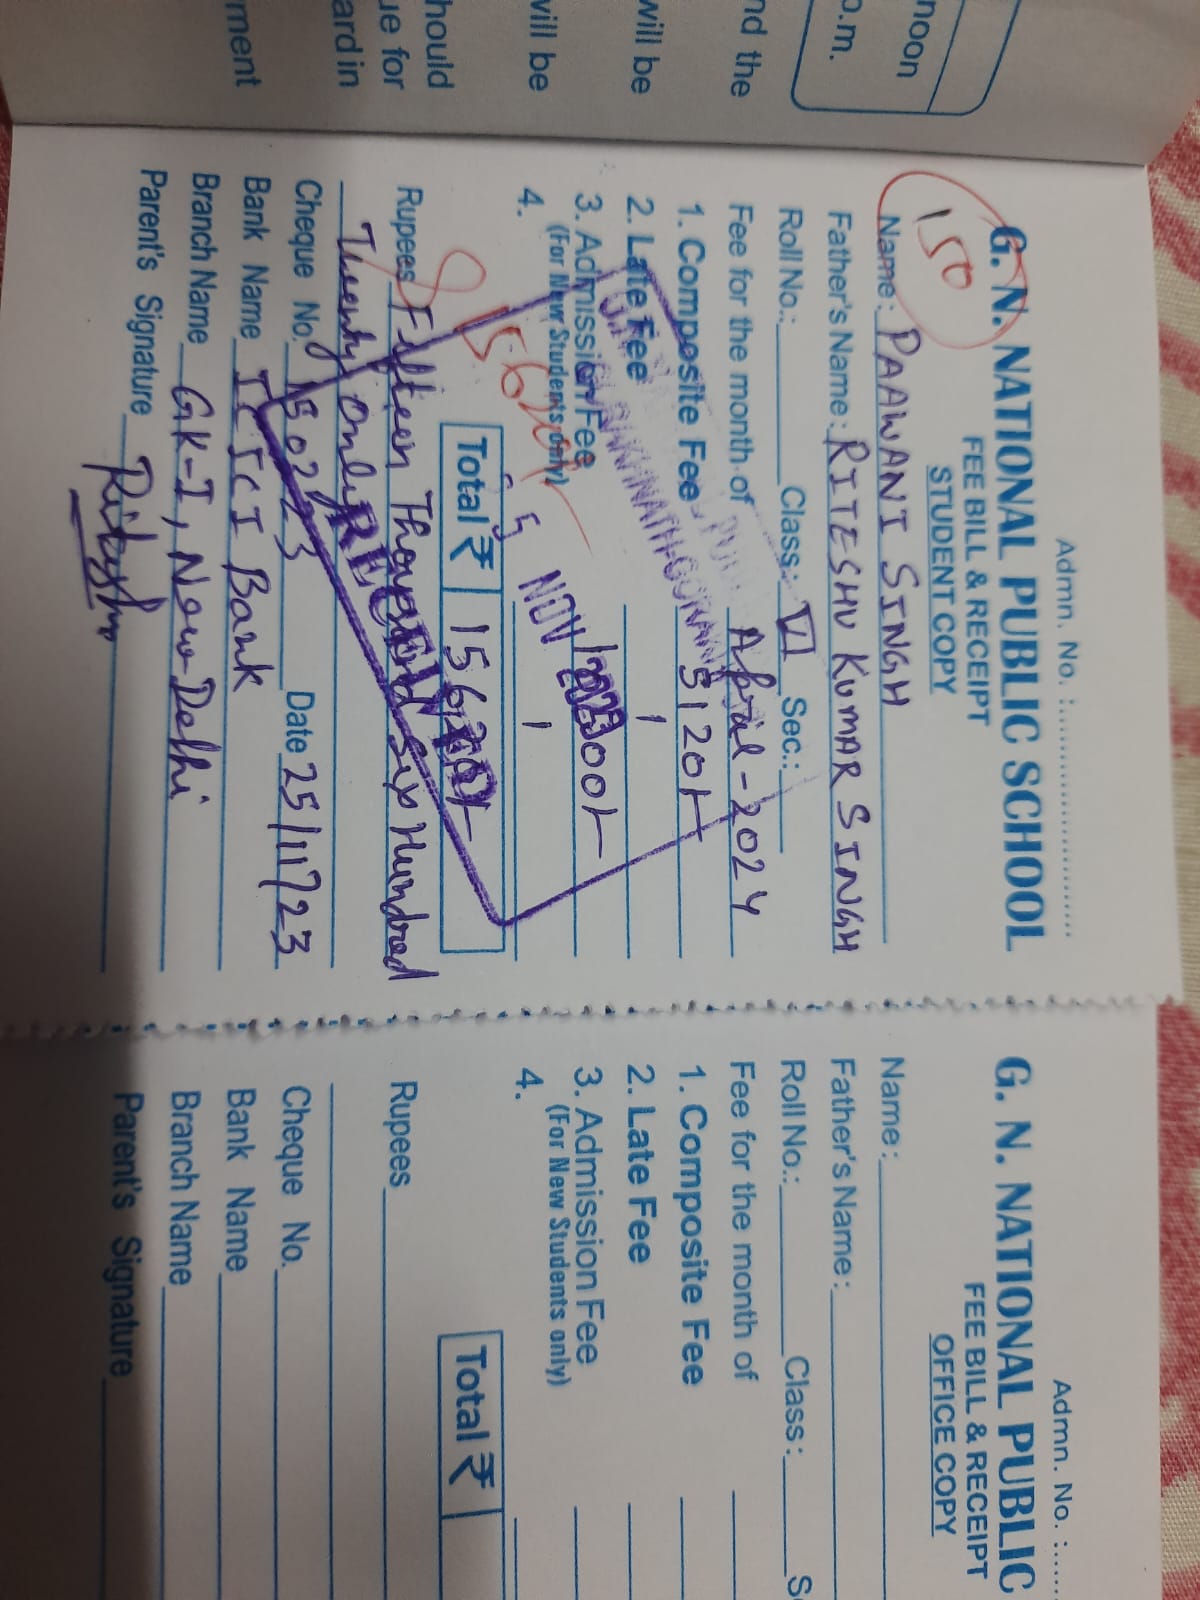 noon
p.m.
nd the
will be
will be
hould
ue for
ard in
ment
Admn. No. :
150
G. N. NATIONAL PUBLIC SCHOOL
FEE BILL & RECEIPT
STUDENT COPY
Name: PAAWANI SINGH
Father's Name: RITESHU KUMAR SINGH
Roll No.: Class: VI Sec.:
Fee for the month of April-2024
1. Composite Fee 5120/-
2. Late Fee
3. Admission Fee
(For New Students only)
4.
NOV 2023
15620/-
Total ₹ 15620/-
Rupees Fifteen Thousand Six Hundred
Twenty Only
RECEIVED
Cheque No. 150223 Date 25/11/23
Bank Name ICICI Bank
Branch Name GK-I, New Delhi
Parent's Signature
Admn. No. :
G. N. NATIONAL PUBLIC
FEE BILL & RECEIPT
OFFICE COPY
Name:
Father's Name:
Roll No.: Class: S
Fee for the month of
1. Composite Fee
2. Late Fee
3. Admission Fee
(For New Students only)
4.
Total ₹
Rupees
Cheque No.
Bank Name
Branch Name
Parent's Signature